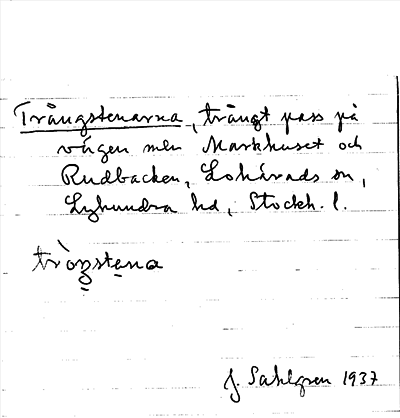 Trångstenarna, trångt pass på
vägen mln Markhuset och
Rudbacken, Lohärads sn,
Lyhundra hd, Stockh. l.
tròŋstena
J. Sahlgren 1937